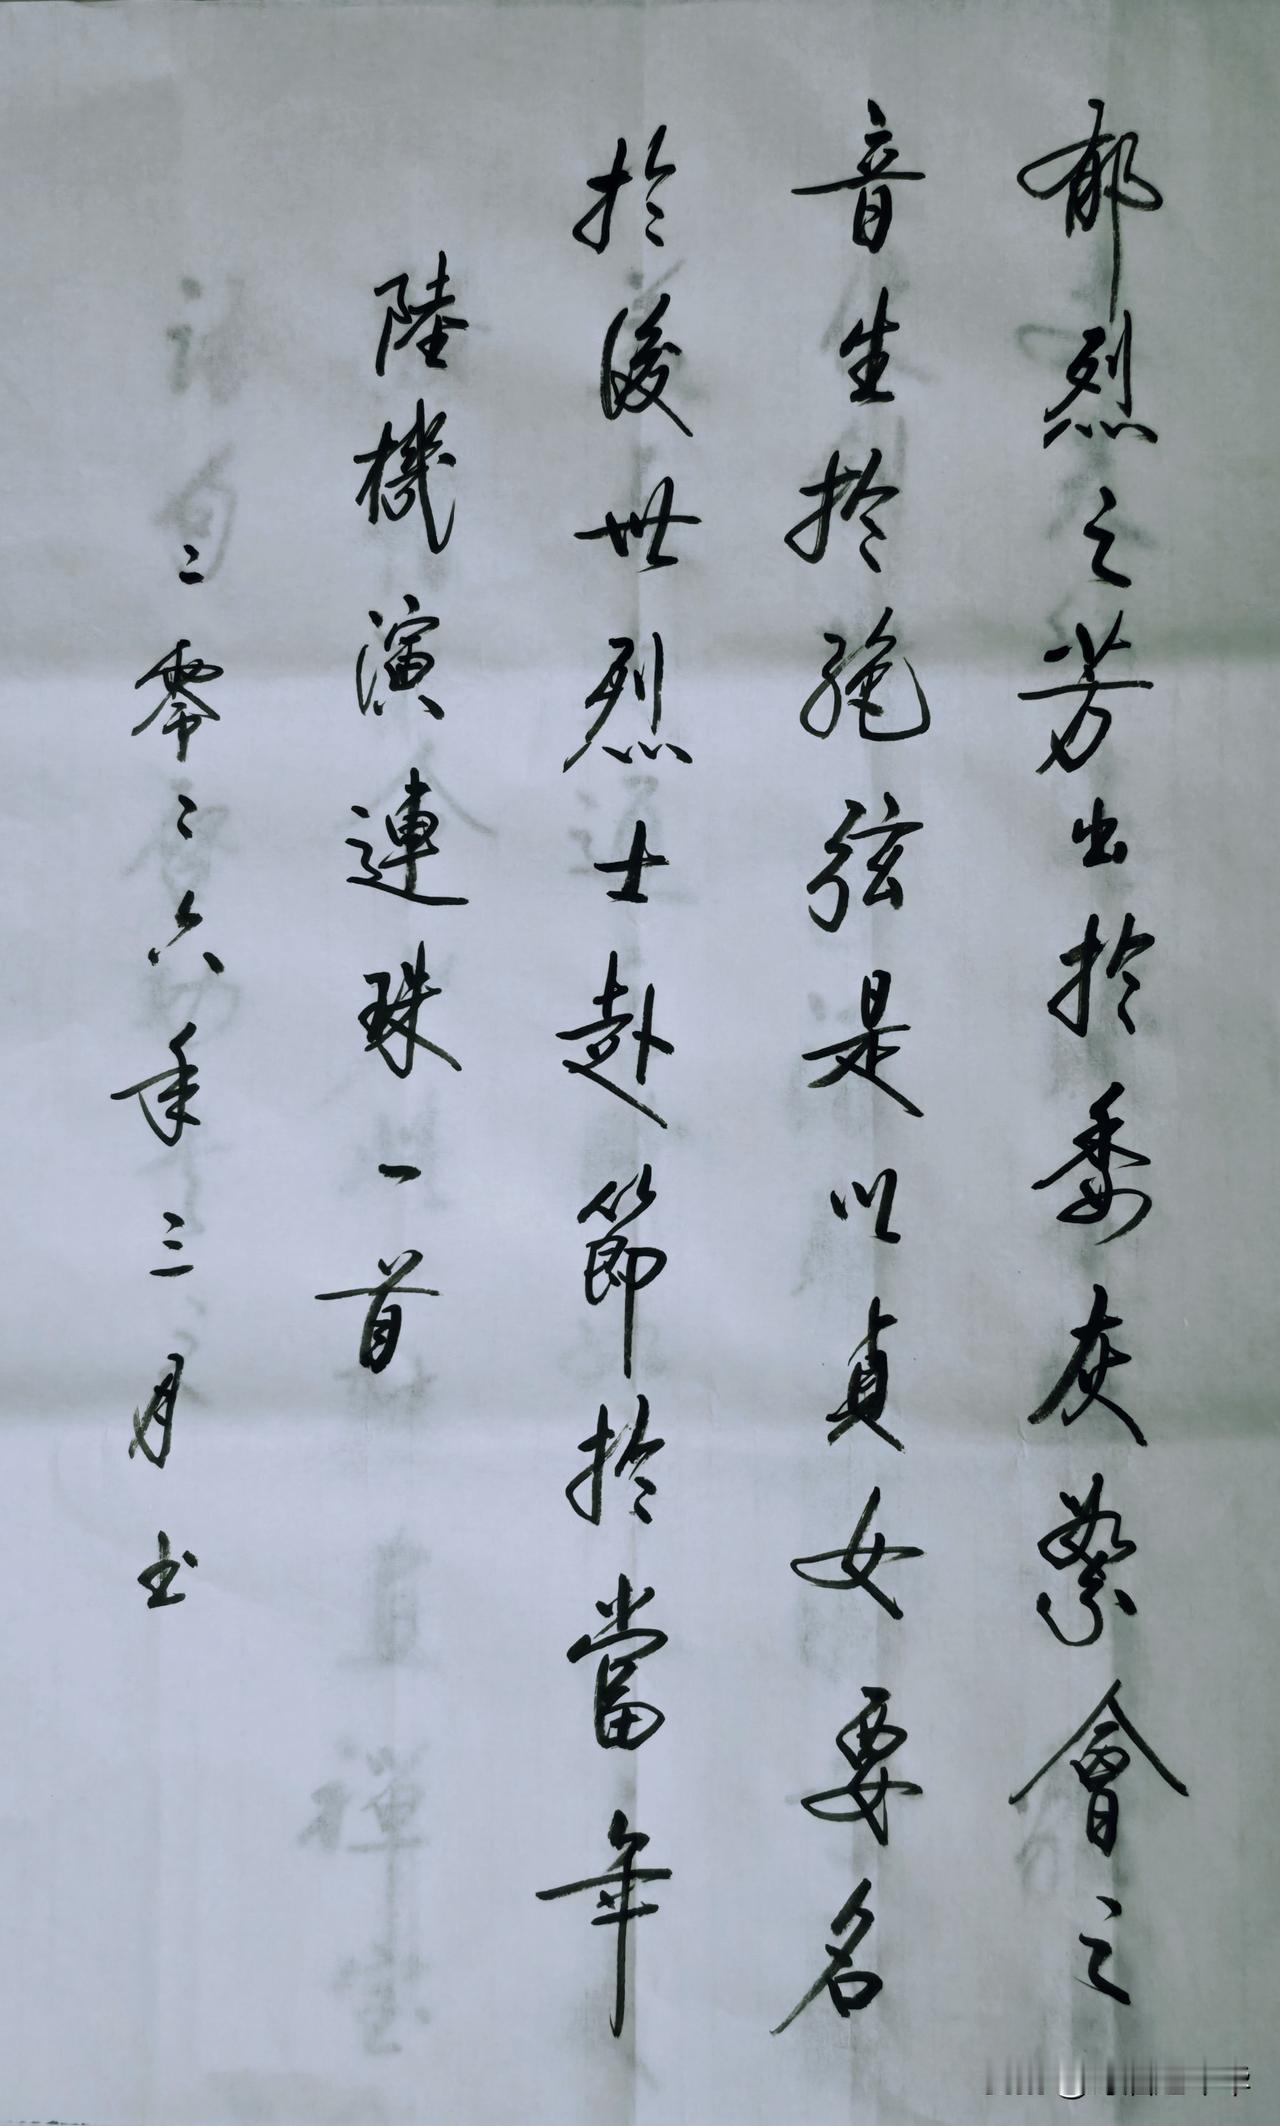 郁烈之芳出於委灰繁會之
音生於絶弦是以貞女要名
於後世烈士赴節於當年
陸機演連珠一首
二零二六年三月书